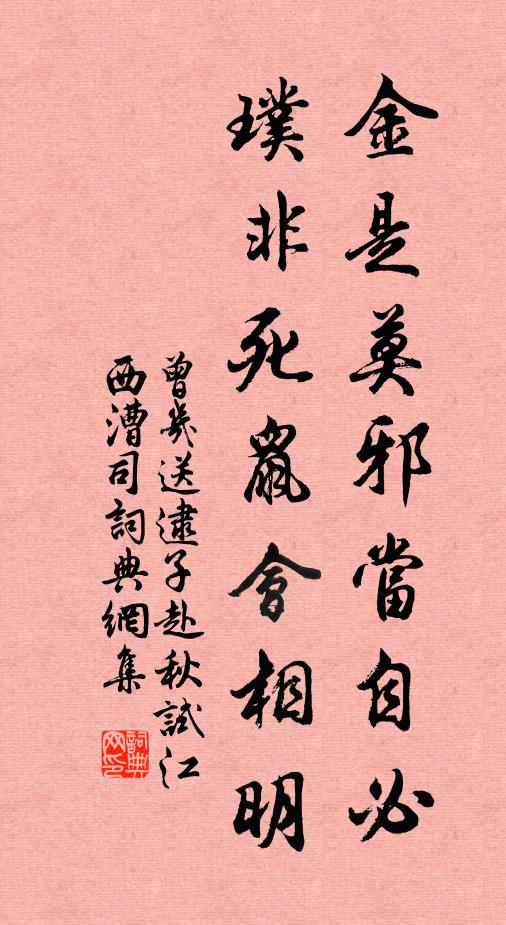 金是莫邪當自必
璞非死鼠會相明
曾幾送逮子赴秋試江
西漕司詞典網集
詞典網印